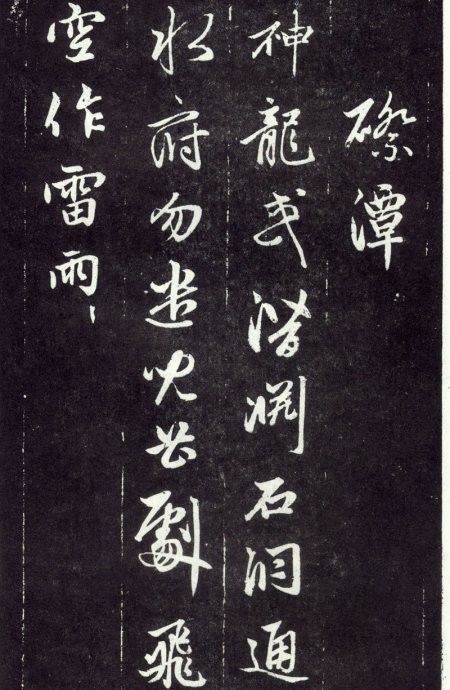 磜潭
神龍或潛淵石洞通
水府勿遣兒曹劇飛
空作雷雨